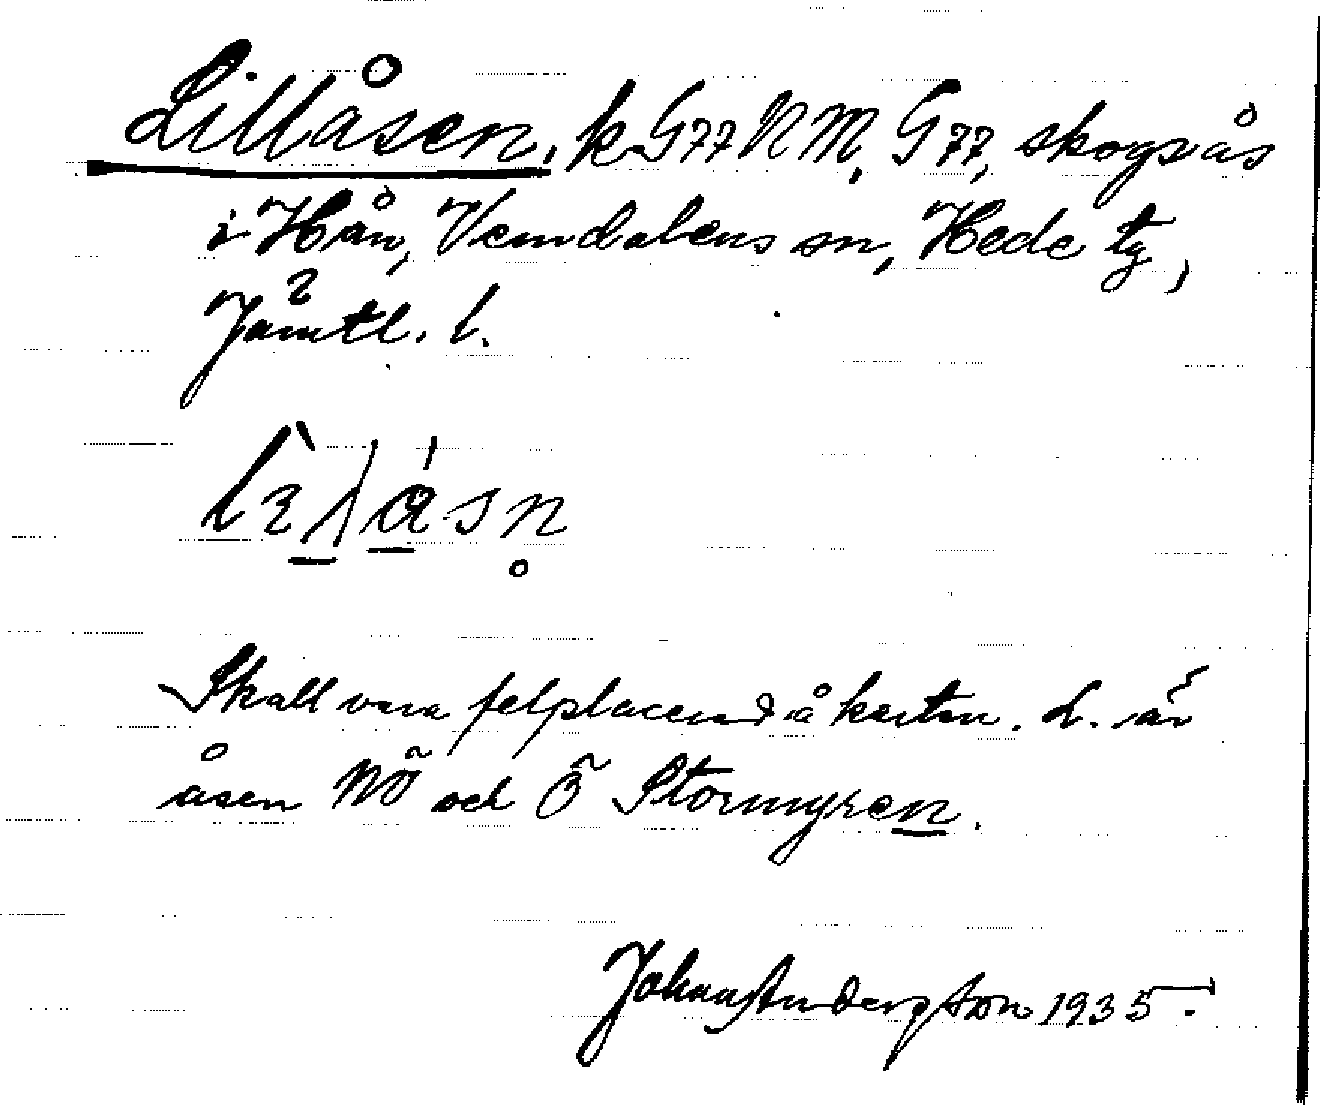 Lillåsen, k G77 NM, G77, skogsås
i Hån, Vemdalens sn, Hede tg,
Jämtl. l.
Skall vara felplacerad å kartan. L. är
åsen NÖ och Ö Stormyren.
Johan Andersson 1935.